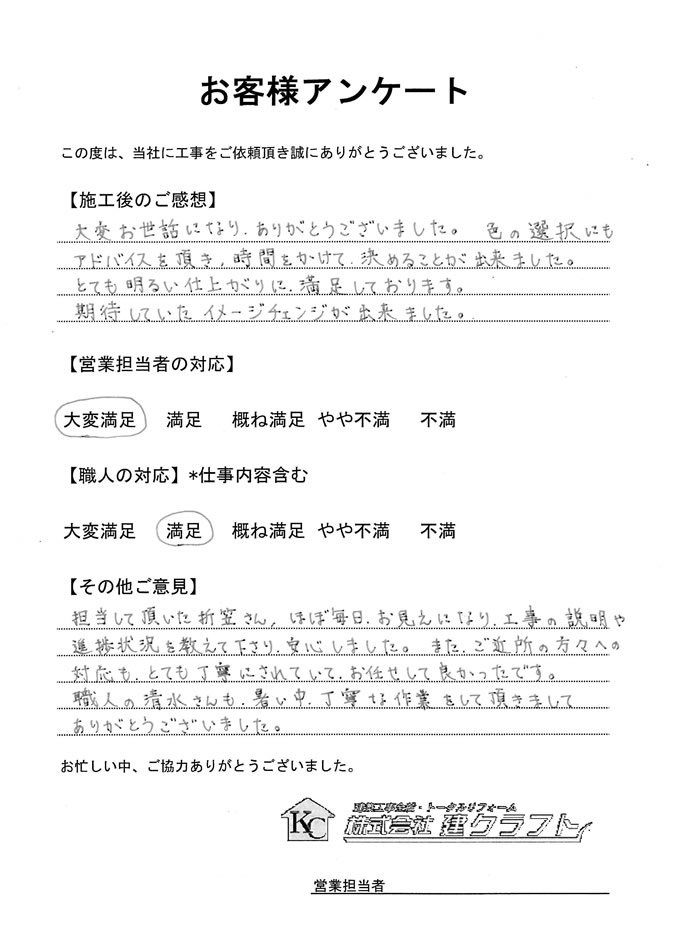 お客様アンケート
この度は、当社に工事をご依頼頂き誠にありがとうございました。
【施工後のご感想】
大変お世話になり、ありがとうございました。 色の選択にも
アドバイスを頂き、時間をかけて、決めることが出来ました。
とても明るい仕上がりに、満足しております。
期待していたイメージチェンジが出来ました。
【営業担当者の対応】
大変満足 満足 概ね満足 やや不満 不満
【職人の対応】*仕事内容含む
大変満足 満足 概ね満足 やや不満 不満
【その他ご意見】
担当して頂いた折笠さん、ほぼ毎日、お見えになり、工事の説明や
進捗状況を教えて下さり、安心しました。 また、ご近所の方々への
対応も、とても丁寧にされていて、お任せして良かったです。
職人の清水さんも、暑い中、丁寧な作業をして頂きまして
ありがとうございました。
お忙しい中、ご協力ありがとうございました。
建築工事全般・トータルリフォーム
KC 株式会社 建クラフト
営業担当者